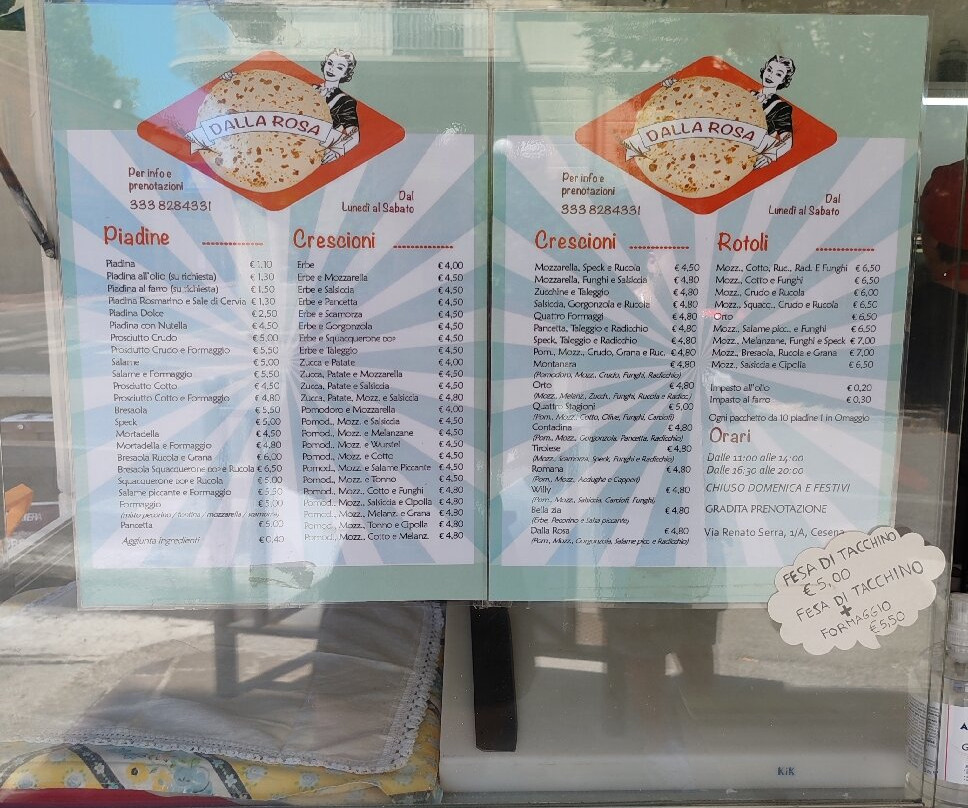 DALLA ROSA
Per info e
prenotazioni
333 8284331
Dal
Lunedì al Sabato
Piadine
Piadina € 1,10
Piadina all'olio (su richiesta) € 1,30
Piadina al farro (su richiesta) € 1,50
Piadina Rosmarino e Sale di Cervia € 1,30
Piadina Dolce € 2,50
Piadina con Nutella € 4,50
Prosciutto Crudo € 5,00
Prosciutto Crudo e Formaggio € 5,50
Salame € 5,00
Salame e Formaggio € 5,50
Prosciutto Cotto € 4,50
Prosciutto Cotto e Formaggio € 4,80
Bresaola € 5,50
Speck € 5,00
Mortadella € 4,50
Mortadella e Formaggio € 4,80
Bresaola Rucola e Grana € 6,00
Bresaola Squacquerone DOP e Rucola € 6,50
Squacquerone DOP e Rucola € 5,00
Salame piccante e Formaggio € 5,50
Formaggio € 5,00
(misto pecorino / fontina / mozzarella / scamorza)
Pancetta € 5,00
Aggiunta ingredienti € 0,40
Crescioni
Erbe € 4,00
Erbe e Mozzarella € 4,50
Erbe e Salsiccia € 4,50
Erbe e Pancetta € 4,50
Erbe e Scamorza € 4,50
Erbe e Gorgonzola € 4,50
Erbe e Squacquerone DOP € 4,50
Erbe e Taleggio € 4,50
Zucca e Patate € 4,00
Zucca, Patate e Mozzarella € 4,50
Zucca, Patate e Salsiccia € 4,50
Zucca, Patate, Mozz. e Salsiccia € 4,80
Pomodoro e Mozzarella € 4,00
Pomod., Mozz. e Salsiccia € 4,50
Pomod., Mozz. e Melanzane € 4,50
Pomod., Mozz. e Wurstel € 4,50
Pomod., Mozz. e Cotto € 4,50
Pomod., Mozz. e Salame Piccante € 4,50
Pomod., Mozz. e Tonno € 4,50
Pomod., Mozz., Cotto e Funghi € 4,80
Pomod., Mozz., Salsiccia e Cipolla € 4,80
Pomod., Mozz., Melanz. e Grana € 4,80
Pomod., Mozz., Tonno e Cipolla € 4,80
Pomod., Mozz., Cotto e Melanz. € 4,80
DALLA ROSA
Per info e
prenotazioni
333 8284331
Dal
Lunedì al Sabato
Crescioni
Mozzarella, Speck e Rucola € 4,50
Mozzarella, Funghi e Salsiccia € 4,80
Zucchine e Taleggio € 4,80
Salsiccia, Gorgonzola e Rucola € 4,80
Quattro Formaggi € 4,80
Pancetta, Taleggio e Radicchio € 4,80
Speck, Taleggio e Radicchio € 4,80
Pom., Mozz., Crudo, Grana e Ruc. € 4,80
Montanara € 4,80
(Pomodoro, Mozz., Crudo, Funghi, Radicchio)
Orto € 4,80
(Mozz., Melanz., Zucch., Funghi, Rucola e Radicc.)
Quattro Stagioni € 5,00
(Pom., Mozz., Cotto, Olive, Funghi, Carciofi)
Contadina € 4,80
(Pom., Mozz., Gorgonzola, Pancetta, Radicchio)
Tirolese € 4,80
(Mozz., Scamorza, Speck, Funghi e Radicchio)
Romana € 4,80
(Pom., Mozz., Acciughe e Capperi)
Willy € 4,80
(Pom., Mozz., Salsiccia, Carciofi, Funghi)
Bella zia € 4,80
(Erbe, Pecorino e Salsa piccante)
Dalla Rosa € 4,80
(Pom., Mozz., Gorgonzola, Salame picc. e Radicchio)
Rotoli
Mozz., Cotto, Ruc., Rad. E Funghi € 6,50
Mozz., Cotto e Funghi € 6,50
Mozz., Crudo e Rucola € 6,00
Mozz., Squacc., Crudo e Rucola € 6,50
Orto € 6,50
Mozz., Salame picc., e Funghi € 6,50
Mozz., Melanzane, Funghi e Speck € 7,00
Mozz., Bresaola, Rucola e Grana € 7,00
Mozz., Salsiccia e Cipolla € 6,50
Impasto all'olio € 0,20
Impasto al farro € 0,30
Ogni pacchetto da 10 piadine 1 in Omaggio
Orari
Dalle 11:00 alle 14:00
Dalle 16:30 alle 20:00
CHIUSO DOMENICA E FESTIVI
GRADITA PRENOTAZIONE
Via Renato Serra, 1/A, Cesena
FESA DI TACCHINO
€ 5,00
FESA DI TACCHINO
+
FORMAGGIO
€ 5,50
KiK